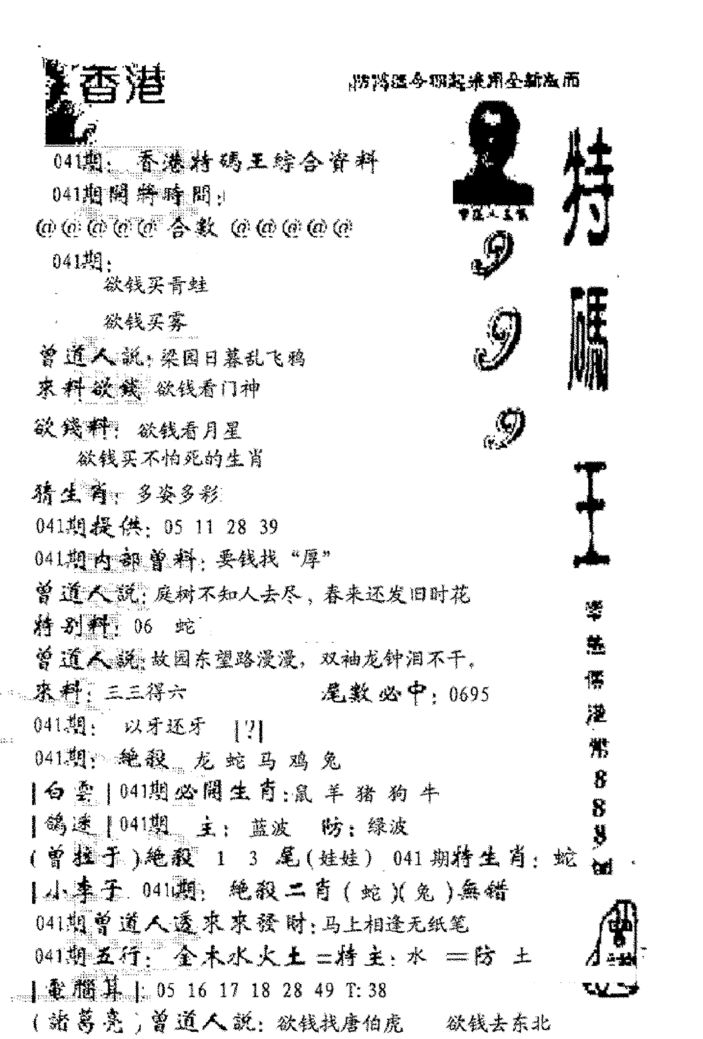 香港
防搞溫今期起採用全新版面
041期: 香港特碼王綜合資料
041期開將時間:
@@@@@ 合数 @@@@@
041期:
欲钱买青蛙
欲钱买雾
曾道人説:梁园日暮乱飞鸦
來料欲錢 欲钱看门神
欲錢料: 欲钱看月星
欲钱买不怕死的生肖
猜生肖: 多姿多彩
041期提供: 05 11 28 39
041期内部曾料:要钱找“厚”
曾道人説:庭树不知人去尽，春来还发旧时花
特别料: 06 蛇
曾道人説:故园东望路漫漫，双袖龙钟泪不干。
來料: 三三得六 尾數必中: 0695
041期: 以牙还牙 |?|
041期: 絶殺 龙 蛇 马 鸡 兔
|白雲|041期必開生肖:鼠 羊 猪 狗 牛
|鴿迷|041期 主: 蓝波 防: 绿波
(曾拉于)絶殺 1 3 尾(娃娃) 041期特生肖: 蛇
|小李子 041期: 絶殺二肖(蛇)(兔)無錯
041期曾道人透來來發財:马上相逢无纸笔
041期五行: 金木水火土=特主:水 =防 土
|電腦算|: 05 16 17 18 28 49 T:38
(諸葛亮)曾道人説: 欲钱找唐伯虎 欲钱去东北
999
特碼王
港幣888